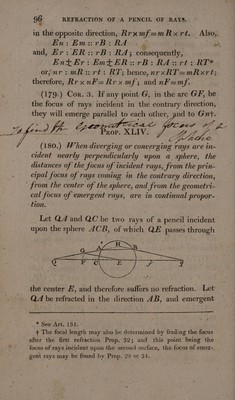 96 REFRACTION OF A PENCIL OF RAYS.
in the opposite direction, Rr x mf = mR x rt. Also,
En : Em :: rB : RA
and, Er : ER :: rB : RA; consequently,
En ± Er : Em ± ER :: rB : RA :: rt : RT*
or, nr : mR :: rt : RT; hence, nr x RT = mR x rt;
therefore, Rr x nF = Rr x mf; and nF = mf.
(179.) COR. 3. If any point G, in the arc GF, be
the focus of rays incident in the contrary direction,
they will emerge parallel to each other, and to GHT.
PROP. XLIV.
(180.) When diverging or converging rays are in-
cident nearly perpendicularly upon a sphere, the
distances of the focus of incident rays, from the prin-
cipal focus of rays coming in the contrary direction,
from the center of the sphere, and from the geometri-
cal focus of emergent rays, are in continual propor-
tion.
Let QA and QC be two rays of a pencil incident
upon the sphere ACB, of which QE passes through
the center E, and therefore suffers no refraction. Let
QA be refracted in the direction AB, and emergent
* See Art. 151.
† The focal length may also be determined by finding the focus
after the first refraction Prop. 32; and this point being the
focus of rays incident upon the second surface, the focus of emer-
gent rays may be found by Prop. 29 or 31.